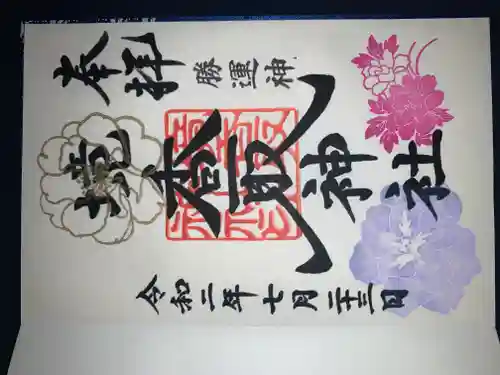 奉拝 勝運神
香取神社
令和二年七月二十三日